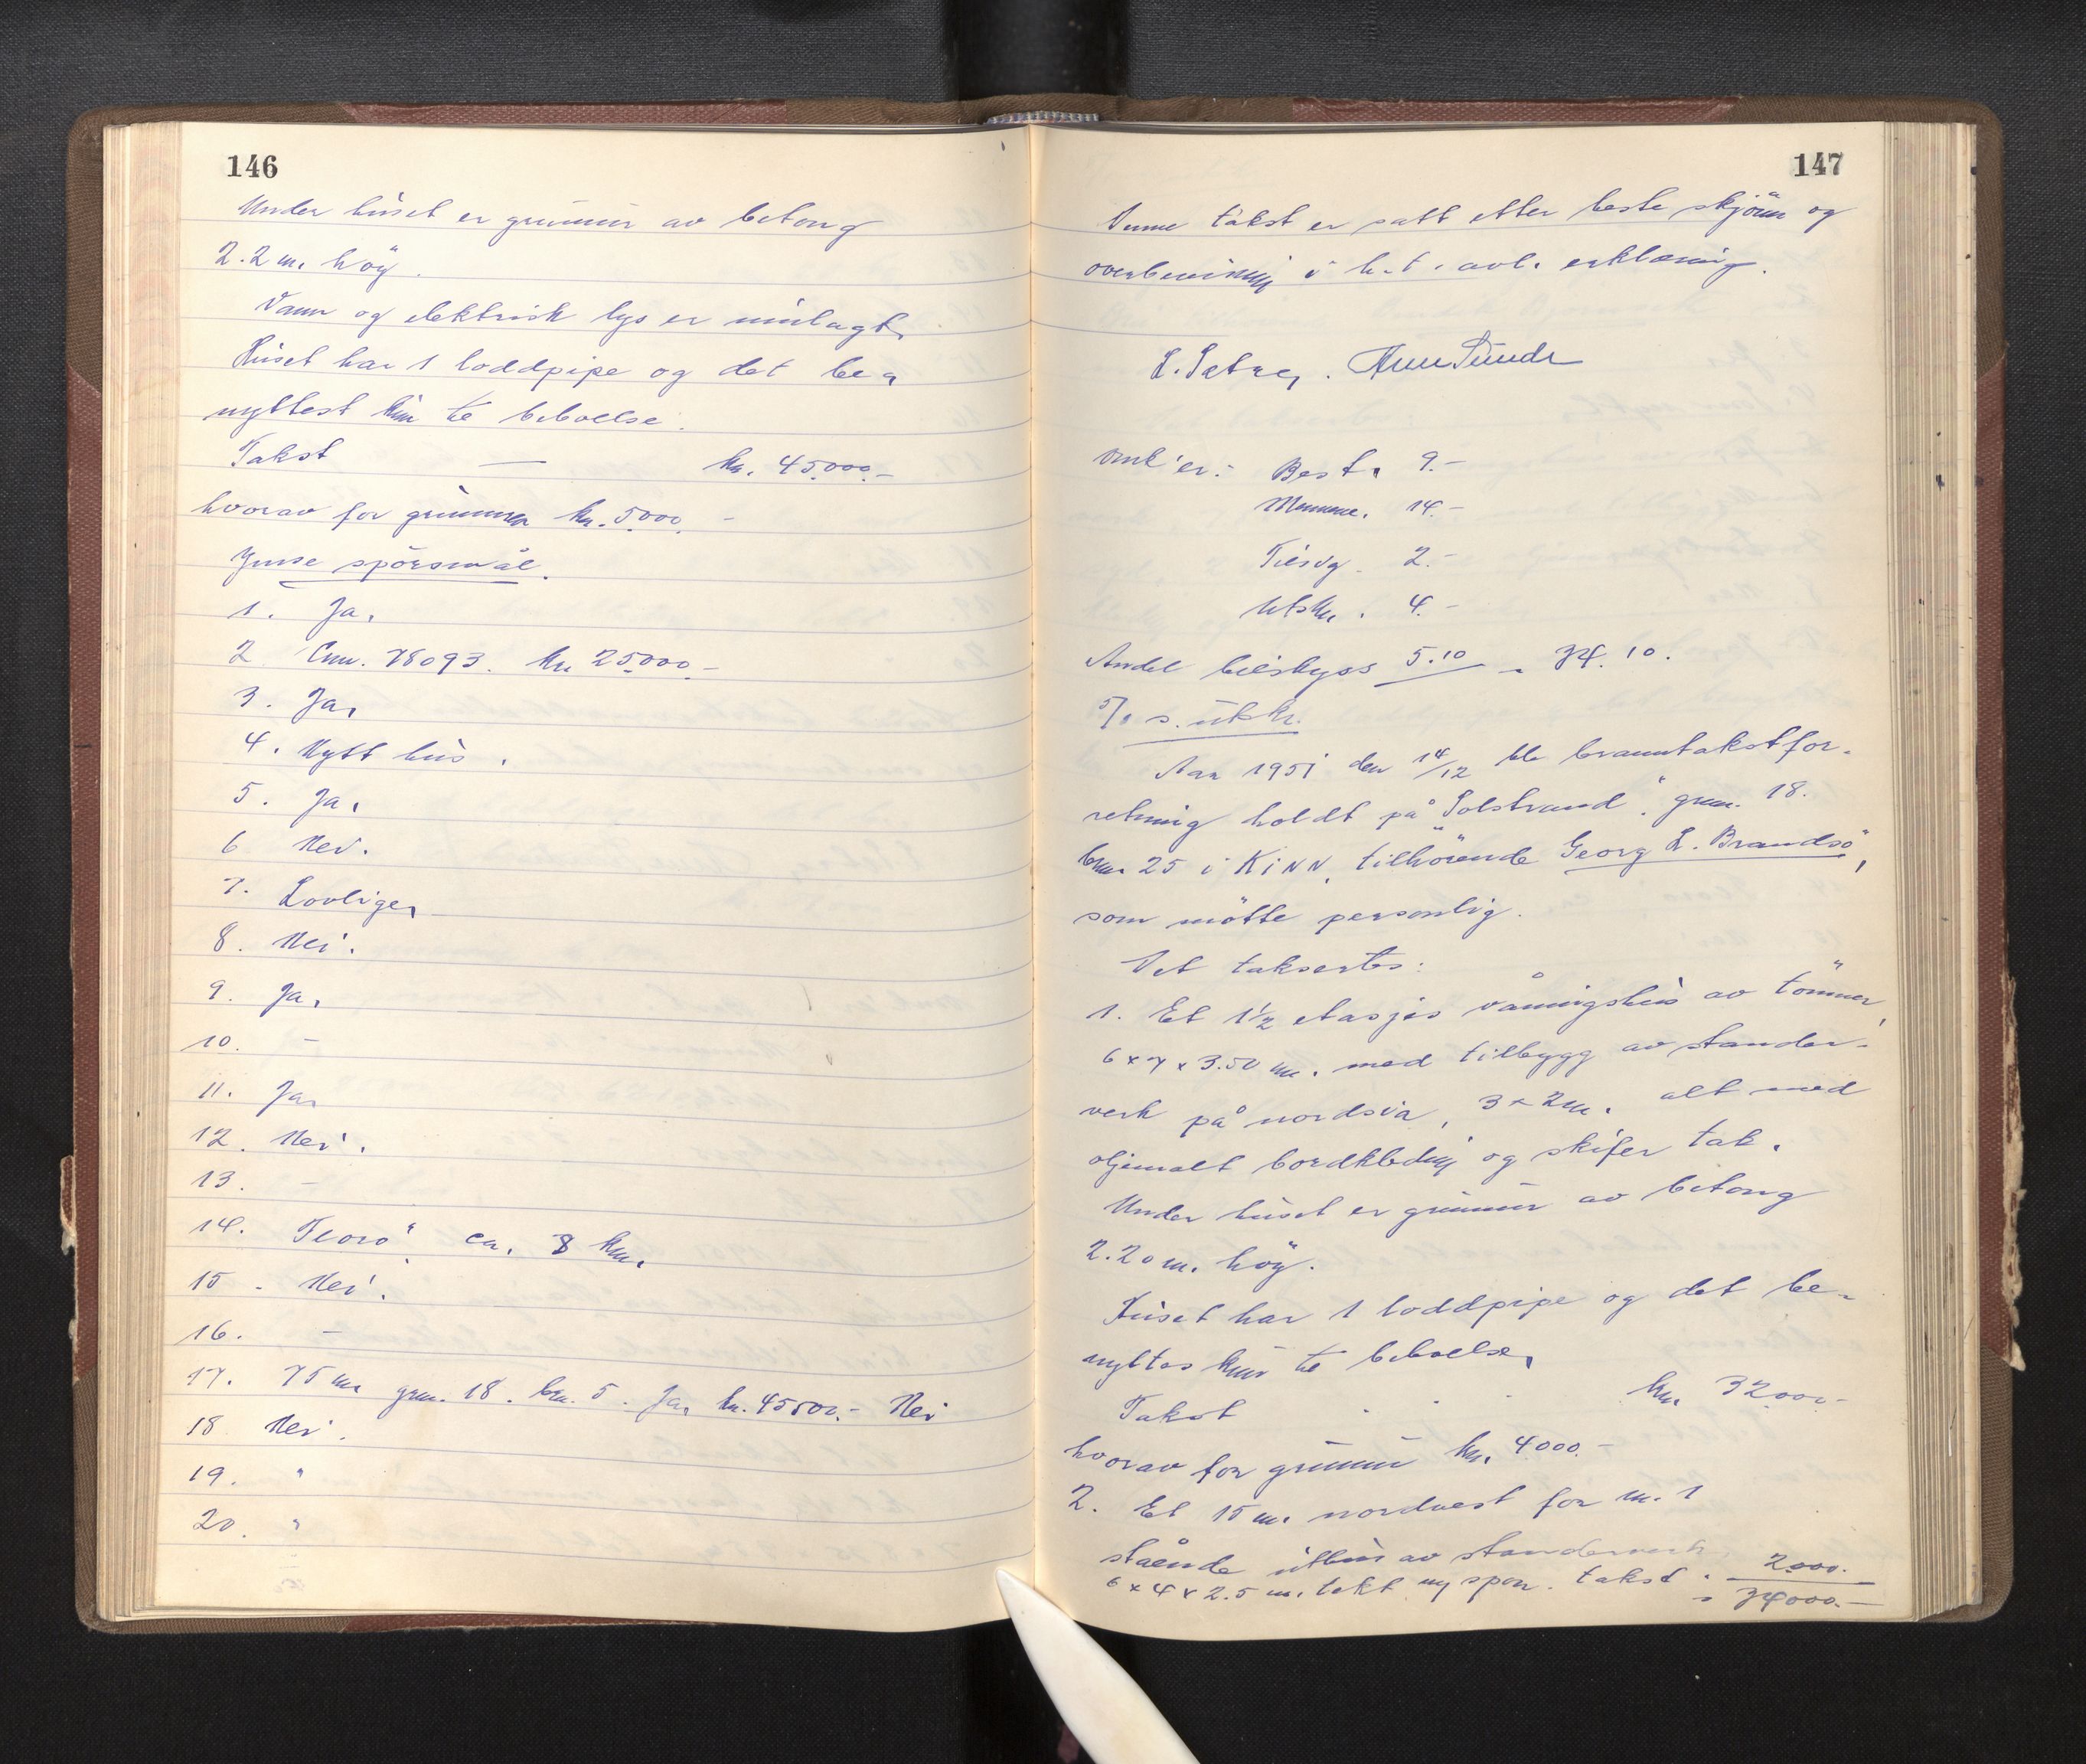 146
Under huset er grunnmur av betong
2.2 m. höy.
Vann og elektrisk lys er innlagt.
Huset har 1 loddpipe og det be-
nyttest kun til beboelse.
Takst — kr. 45000.-
hvorav for grunnmur kr. 5000.-
Ymse spörsmål.
1. Ja.
2 Cnr. 78093. kr 25000.-
3. Ja.
4. Nytt hus.
5. Ja.
6 Nei.
7. Lovlige.
8. Nei.
9. Ja.
10. -
11. Ja.
12. Nei.
13. -
14. Florö, ca. 8 km.
15 - Nei.
16. -
17. 75 m gnr. 18. bnr. 5. Ja, kr. 45500.- Nei
18 Nei.
19. "
20. "
147
Denne takst er satt etter beste skjönn og
overbevisning i h.t. avl. erklæring.
Omk'er:- Best. 9.-
14.-
2.-
Utskr. 4.-
Andel bilskyss 5.10 - 34.10.
s. utskr.
Aar 1951 den 14/12 ble branntakstfor-
retning holdt på "Solstrand", gnr. 18.
bnr 25 i KINN, tilhörende Georg L. Brandsö,
som mötte personlig.
Det takseres:
1. Et 1½ etasjes våningshus av tömmer,
6 x 7 x 3.50 m. med tilbygg av stender-
verk på nordsia, 3 x 2 m. alt med
oljemalt bordkledning og skifer tak.
Under huset er grunnmur av betong
2.20 m. höy.
Huset har 1 loddpipe og det be-
nyttes kun til beboelse.
Takst kr. 32000.-
hvorav for grunnmur kr. 4000.-
2. Et 15 m. nordvest for nr. 1
stående uthus av stenderverk,
6 x 4 x 2.5 m. tekt m/ spon. takst - 2000.-
- 34000.-